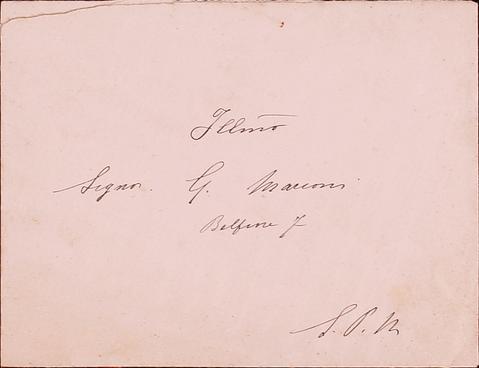 Illmo
Signor. G. Marconi
Belfiore 7
S. P. M